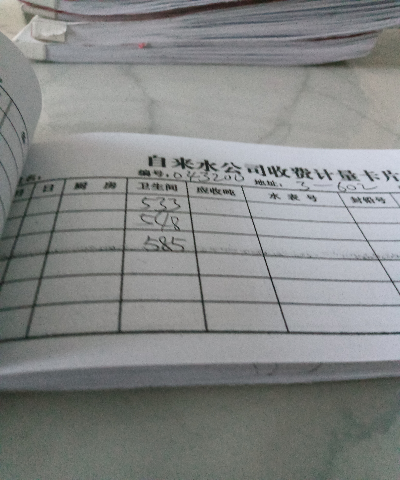 自来水公司收费计量卡片
编号:043200 地址:3-602
日 厨房 卫生间 应收吨 水表号 封铅号
533
548
585